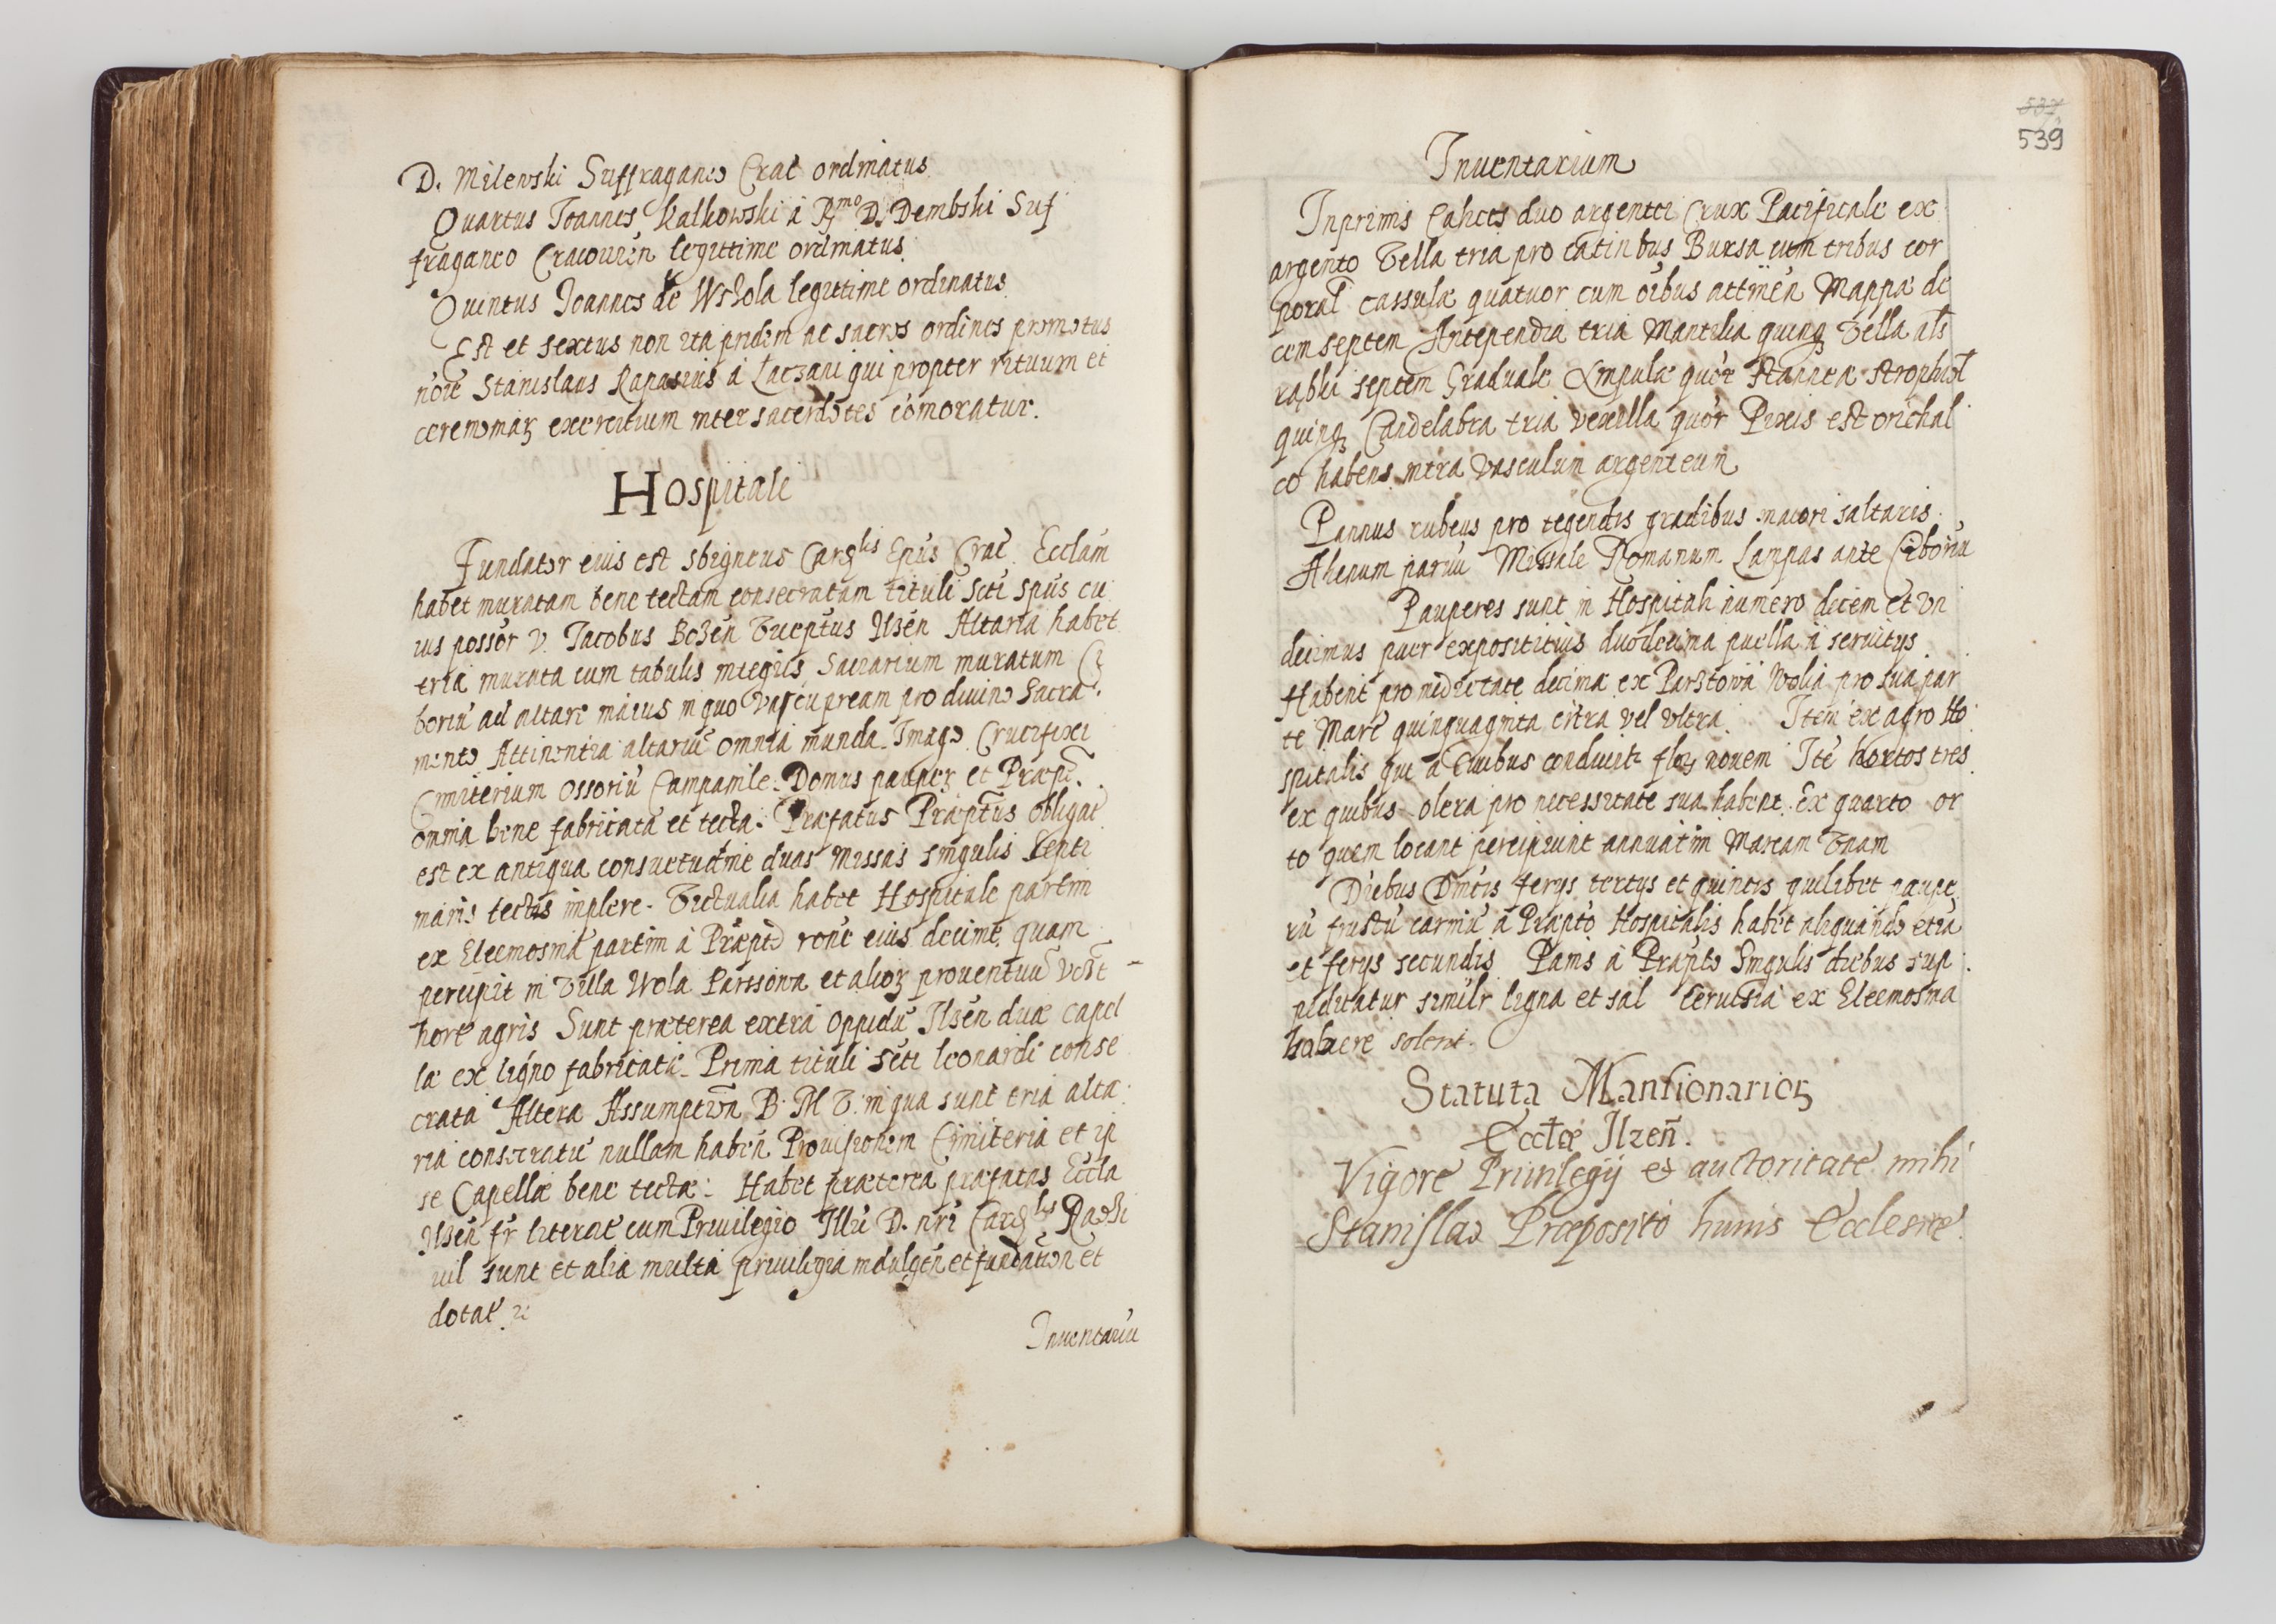 D. Milewski Suffraganeo Crac̄ ordinatus
Quartus Joannes Kalkowski à R^mo D. Dembski Suf
fraganeo Cracovień legittime ordinatus
Quintus Joannes de Wszola legittime ordinatus
Est et sextus non ita pridem ac sacros ordines promotus
noīe Stanislaus Rapasius à Laczani qui propter rituum et
ceremoniaꝝ exercitium inter sacerdotes cōmoratur.
Hospitale
Fundator eius est Sbigneus Card^lis Epūs Crac̄. Ecclām
habet muratam bene tectam consecratam tituli Sc̄ti Spūs cu
ius possor V. Jacobus Bozēn Ilzēn Altaria habet
tria murata cum tabulis integris Sacrarium muratum Ci
boriū ad altare maius in quo pro divino Sacra
mento Attinentia altariū omnia munda Imago Crucifixi
Cimiterium ossoriū Campanile. Domus paupeꝝ et Præp̄t.
omnia bene fabricata et tecta. Præfatus Præp̄tus obligat̄
est ex antiqua consuetudine duas Missas singulis septi
manis lectas implere. Victualia habet Hospitale partim
ex Eleemosina partim à Præp̄to rōne eius decimæ quam
percipit in Villa Wola et alioꝝ proventuū
hort̄ agris Sunt præterea extra Oppidū Ilzēn duæ capel
læ ex ligno fabricatæ Prima tituli Sc̄ti Leonardi conse
crata Altera Assumption̄ B. M V. in qua sunt tria alta
ria consecrata nullam habēn Provisionem Cimiteria et ip
sæ Capellæ bene tectæ. Habet præterea præfata Eccl̄a
Ilzēn literat̄ cum Privilegio Illū D. nr̄i Card^lis Radzi
vil sunt et alia multa privilegia indulgēn et fundatiōn et
dotat̄ &
Inventariū
537
539
Inventarium
Inprimis Calices duo argentei Crux Pacificale ex
argento Vella tria pro calicibus Bursa cum tribus cor
poral̄ cassulæ quatuor cum oībus attinēn Mappæ de
cem septem Antependia tria Mantilia quinqꝫ Vella
septem Graduale Ampulæ quōr stannea
quinqꝫ Candelabra tria vexilla quōr Pixis est orichal
co habens intra vasculum argenteum
Pannus rubeus pro tegendis gradibus maioris altaris
Ahenum parvū Missale Romanum Lampas ante Ciboriū
Pauperes sunt in Hospitali numero decem et un
decimus puer expositivus duodecima puella à servitys
Habent pro medietate decimæ ex Parztowa Wolia pro sua par
te Marc̄ quinquaginta citra vel ultra. Item ex agro Ho
spitalis qui à Civibus conducit̄ floꝝ novem Itē hortos tres
ex quibus olera pro necessitate sua habent. Ex quarto or
to quem locant percipiunt annuatim Marcam Unam
Diebus Dn̄icis ferys tertys et quintis quilibet paupe
rū frustū carniū à Præp̄to Hospitalis habet aliquando etiā
et ferys secundis. Panis à Præp̄to Singulis diebus sup
peditatur similr̄ ligna et sal Cervisia ex Eleemosina
habere solent.
Statuta Mansionarioꝝ
Eccl̄æ Ilzeñ.
Vigore Privilegij & auctoritate mihi
Stanislao Præposito huius Ecclesiæ